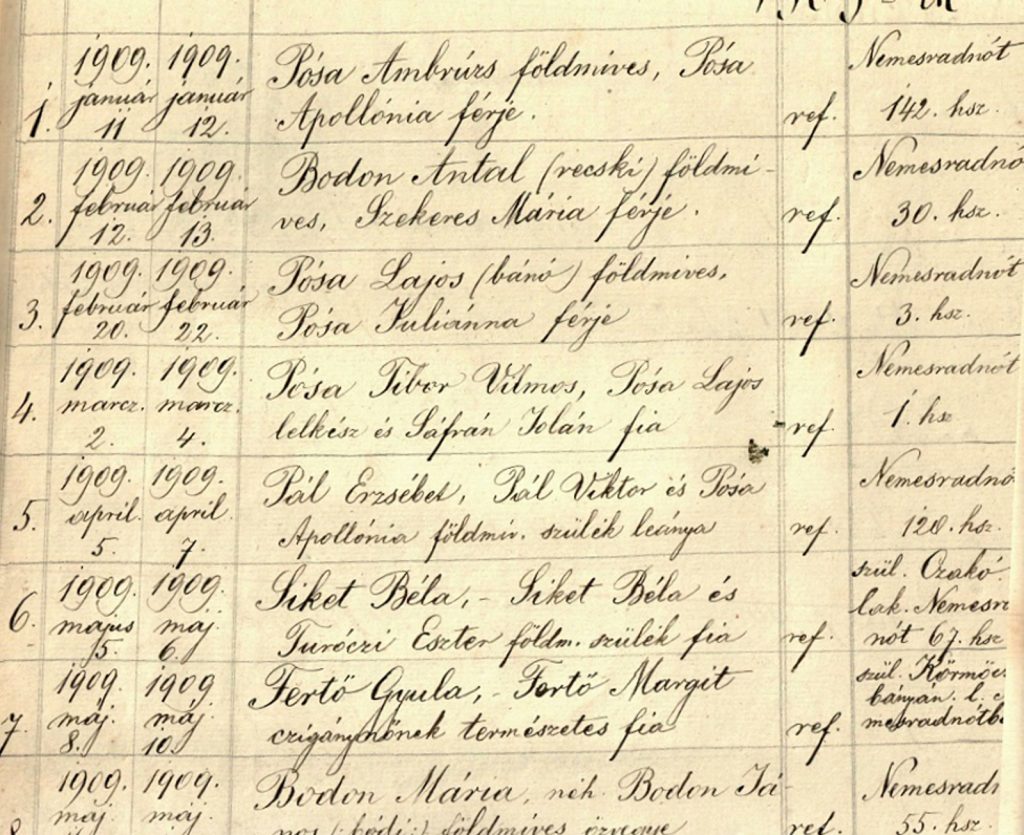 1909. 1909. Pósa Ambrúzs földmives, Pósa Nemesradnót
1. január január Apollónia férje. ref. 142. hsz.
11 12.
1909. 1909. Bodon Antal (recski) földmi- Nemesradnó
2. február február ves, Szekeres Mária férje. ref. 30. hsz.
12. 13.
1909. 1909. Pósa Lajos (bánó) földmives, Nemesradnót
3. február február Pósa Juliánna férje ref. 3. hsz.
20. 22.
1909. 1909. Pósa Tibor Vilmos, Pósa Lajos Nemesradnót
4. marcz. marcz. lelkész és Sáfrán Jolán fia ref. 1. hsz
2. 4.
1909. 1909. Pál Erzsébet, Pál Viktor és Pósa Nemesradnó
5. april. april. Apollónia földmiv. szülék leánya ref. 120. hsz.
5. 7.
1909. 1909. Siket Béla, - Siket Béla és szül. Czakó.
6. május máj. Turóczi Eszter földm. szülék fia ref. lak. Nemesr
5. 6. nót 67. hsz
1909. 1909 Fertő Gyula, - Fertő Margit szül. Körmöcz
7. máj. máj. czigánynőnek természetes fia ref. bányán. l.
8. 10. mesradnótb
1909. 1909. Bodon Mária, néh. Bodon Já- Nemesradn
máj. máj. nos (bódi) földmives özvegye ref. 55. hsz.